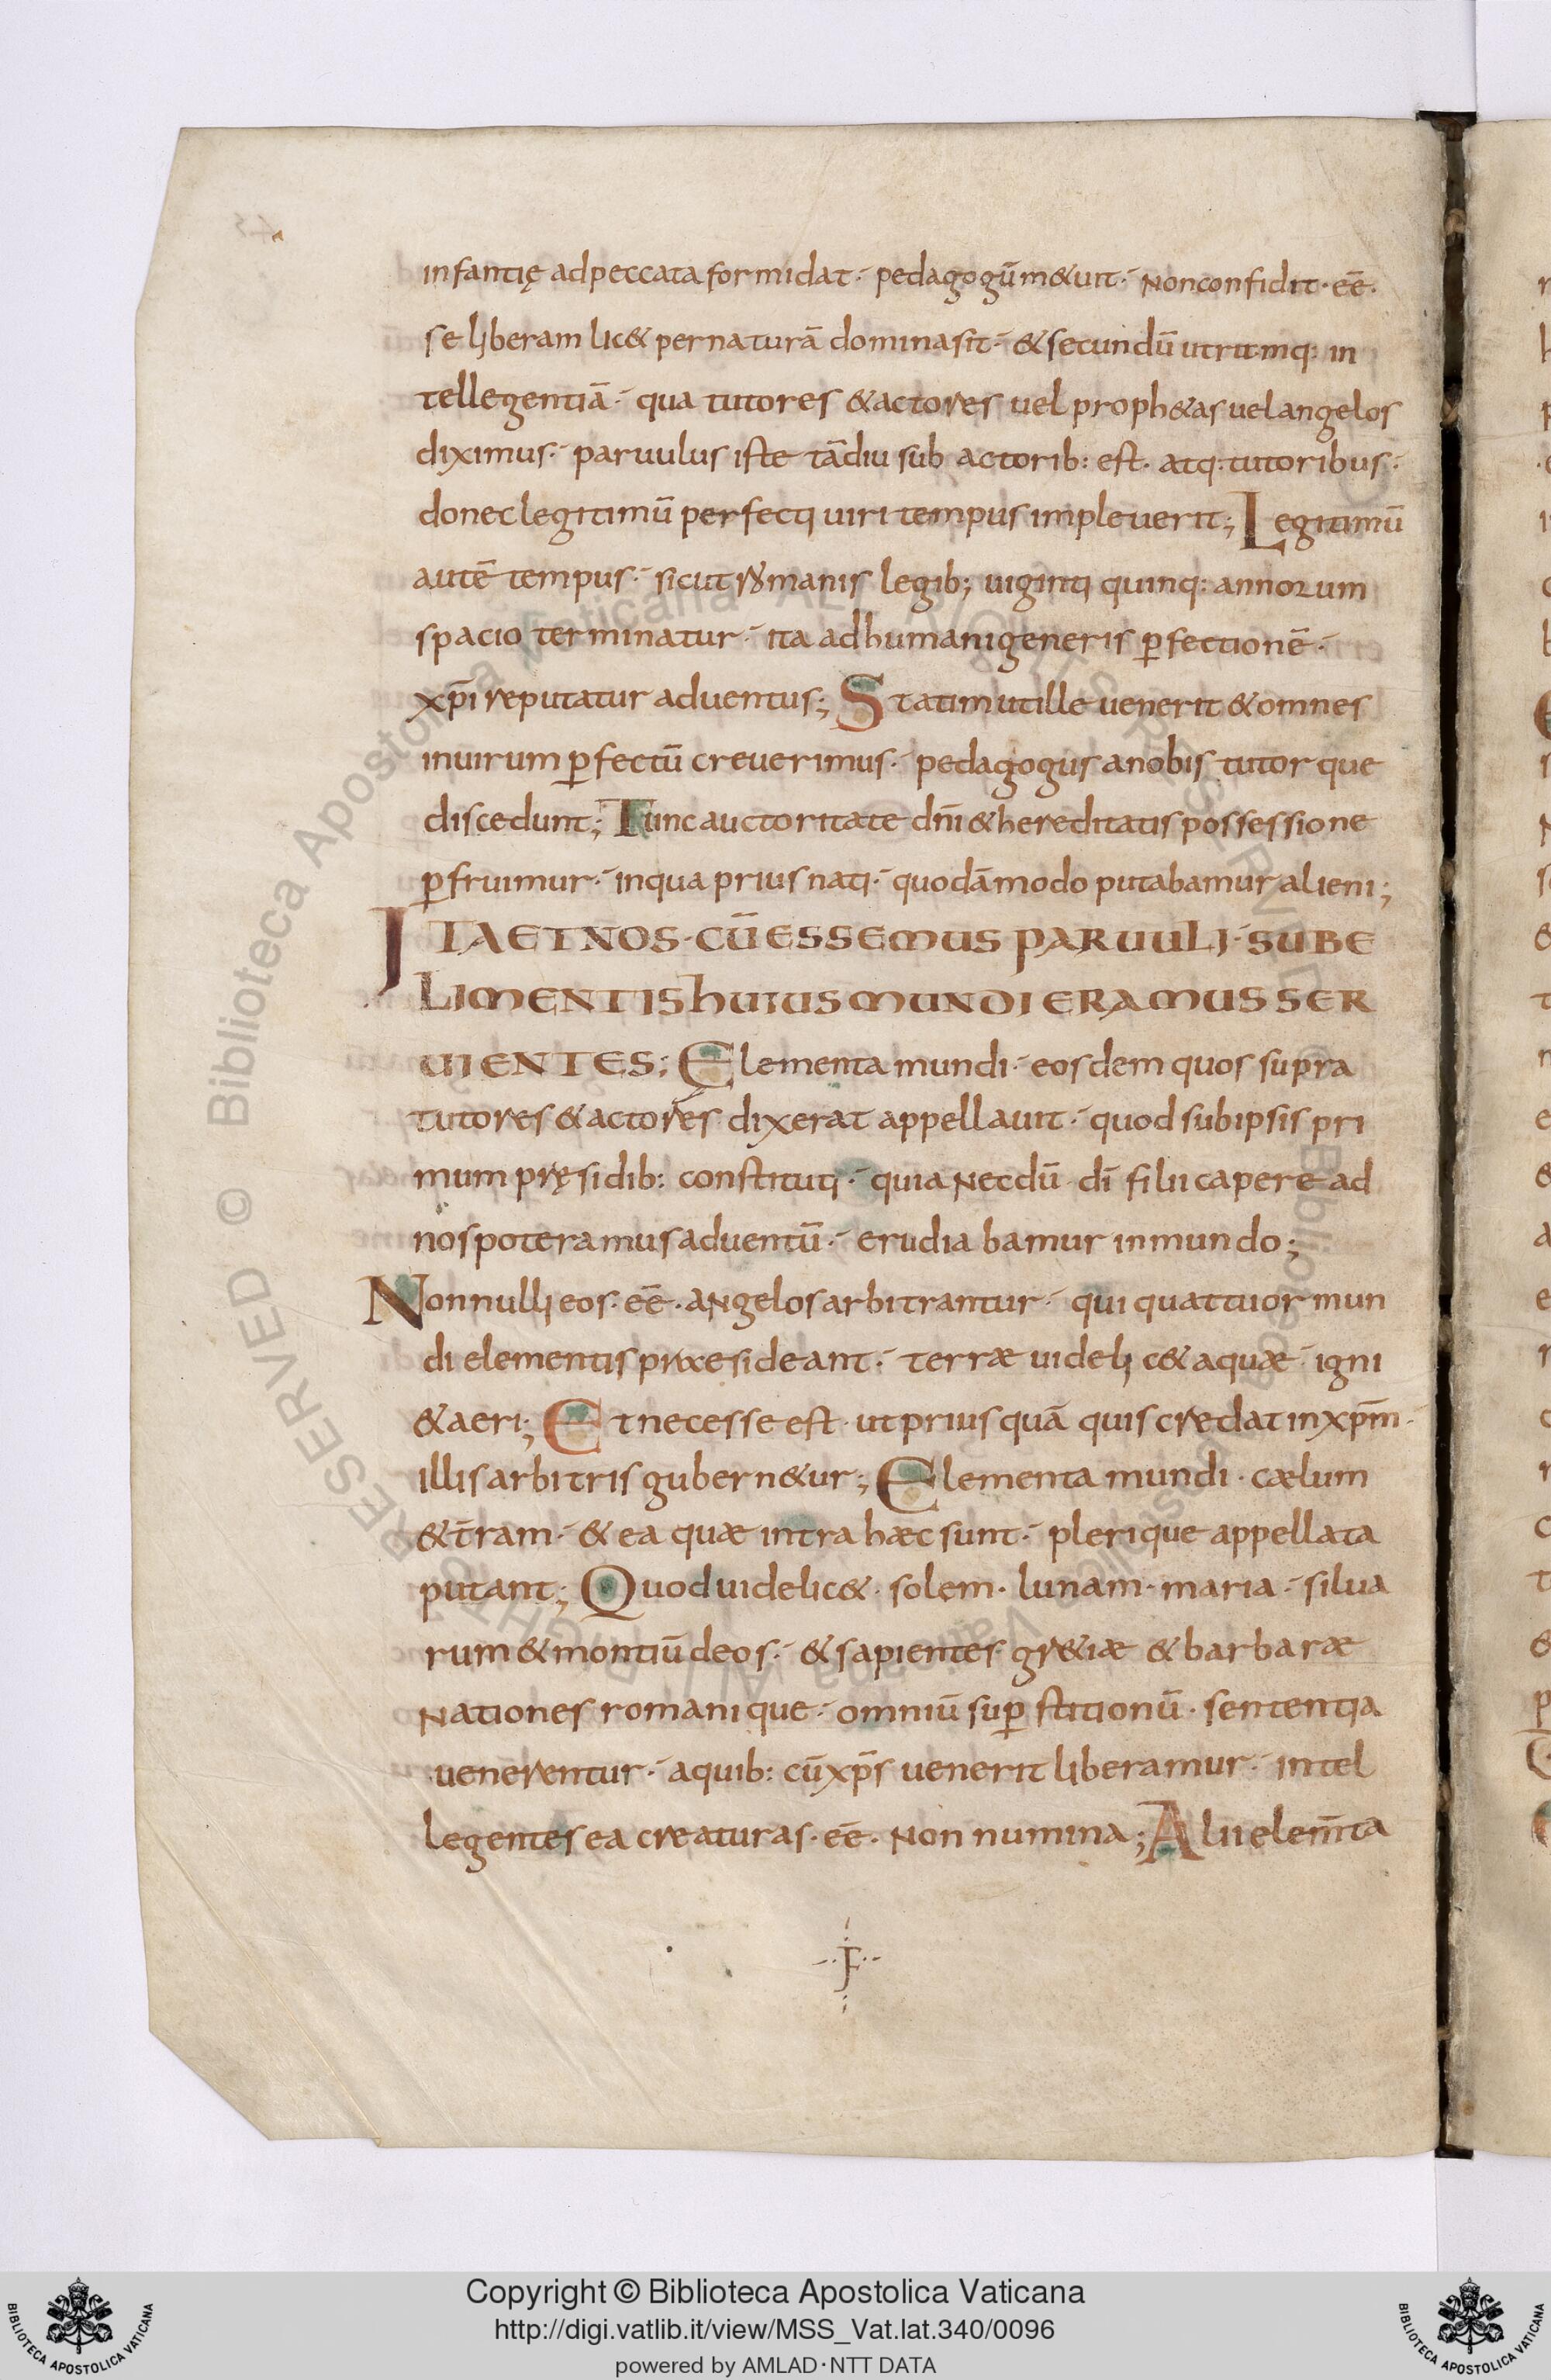 infantię adpeccata formidat · pedagogūm&uit · Nonconfidit · eē ·
se liberam lic& pernaturā dominasit · & secundū utrumq: in
tellegentiā · qua tutores &actores uel proph&as uelangelos
diximus · paruulus iste tādiu sub actorib: est · atq: tutoribus ·
doneclegitimū perfecti uiri tempus impleuerit; Legitimū
autē tempus · sicut romanis legib; uiginti quinq: annorum
spacio terminatur · ita adhumanigeneris p̲fectionē ·
xp̄i reputatur aduentus; Statimutille uenerit &omnes
inuirum p̲fectū creuerimus · pedagogus anobis tutorque
discedunt; Tunc auctoritate dn̄i &hereditatis possessione
p̲fruimur · inqua prius nati · quodāmodo putabamur alieni;
ITAETNOS · CŪESSEMUS PARUULI · SUBE
LIMENTIS hUIUS MUNDI ERAMUS SER
UIENTES; Elementa mundi · eosdem quos supra
tutores &actores dixerat appellauit · quod subipsis pri
mum pręsidib: constituti · quia Necdū dī filii capere ad
nos poteramus aduentū · erudiabamur inmundo;
Nonnulli eos · eē · aNgelos arbitrantur · qui quattuor mun
di elementis præesideant · terræ uidelic& aquæ · igni
&aeri; Et necesse est · ut prius quā quis credat inxp̄m ·
illis arbitris gubern&ur; Elementa mundi · cælum
&t̄ram · & ea quæ intra hæc sunt · plerique appellata
putant; Quod uidelic& · solem · lunam · maria · silua
rum & montiū deos · & sapientes gr&iæ & barbaræ
Nationes romanique · omniū sup̲stitionū · sententia
uenerentur · aquib: cū xp̄s uenerit liberamur · intel
legentes ea creaturas · eē · Non numina; Alii elem̄ta
F
© Biblioteca Apostolica Vaticana ALL RIGHTS RESERVED
Copyright © Biblioteca Apostolica Vaticana
http://digi.vatlib.it/view/MSS_Vat.lat.340/0096
powered by AMLAD·NTT DATA
BIBLIOTECA APOSTOLICA VATICANA
BIBLIOTECA APOSTOLICA VATICANA